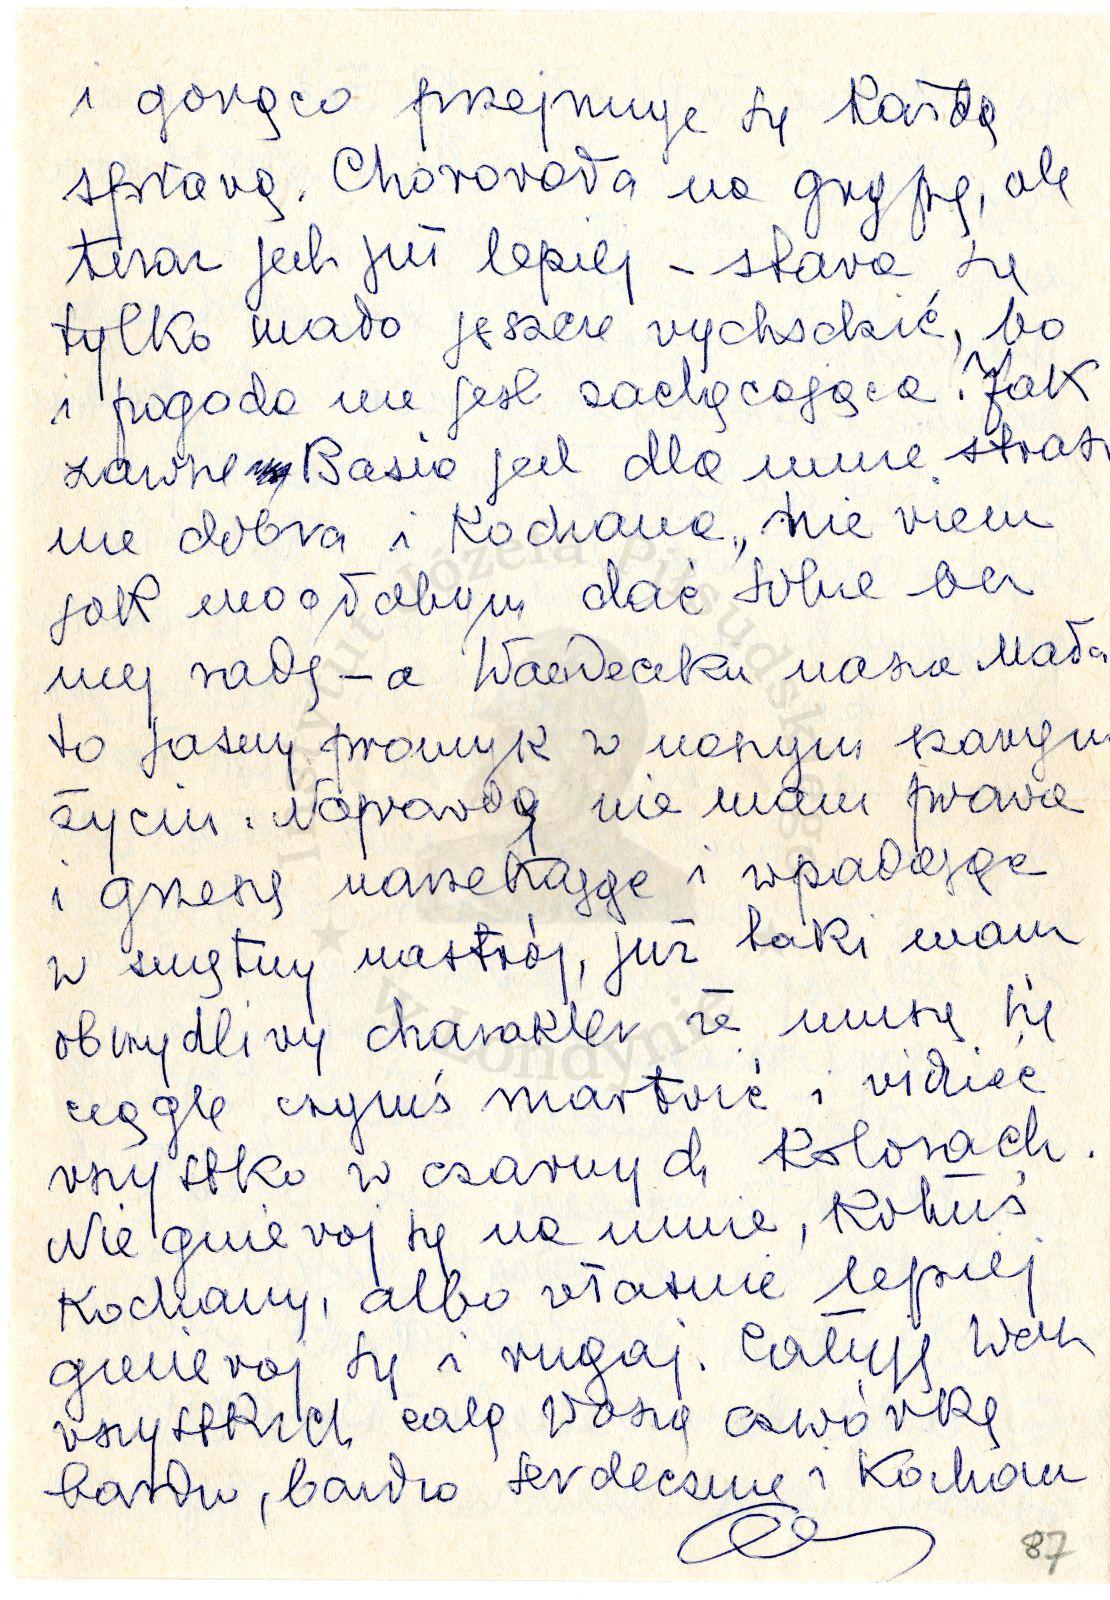 i gorąco przejmuje się każdą
sprawą. Chorowała na grypę, ale
teraz jest już lepiej – stara się
tylko mało jeszcze wychodzić, bo
i pogoda nie jest zachęcająca. Jak
zawsze Basia jest dla mnie strasz
nie dobra i kochana, nie wiem
jak mogłabym dać sobie bez
niej radę – a nasza Mała
to jasny promyk w naszym szarym
życiu. Naprawdę nie mam prawa
i grzeszę narzekając i wpadając
w smętny nastrój, już taki mam
obrzydliwy charakter że muszę się
ciągle czymś martwić i widzieć
wszystko w czarnych kolorach.
Nie gniewaj się na mnie, Kotuś
Kochany, albo właśnie lepiej
gniewaj się i rugaj. Całuję Was
wszystkich całą Waszą czwórkę
bardzo, bardzo serdecznie i Kocham
87
Instytut Józefa Piłsudskiego
w Londynie